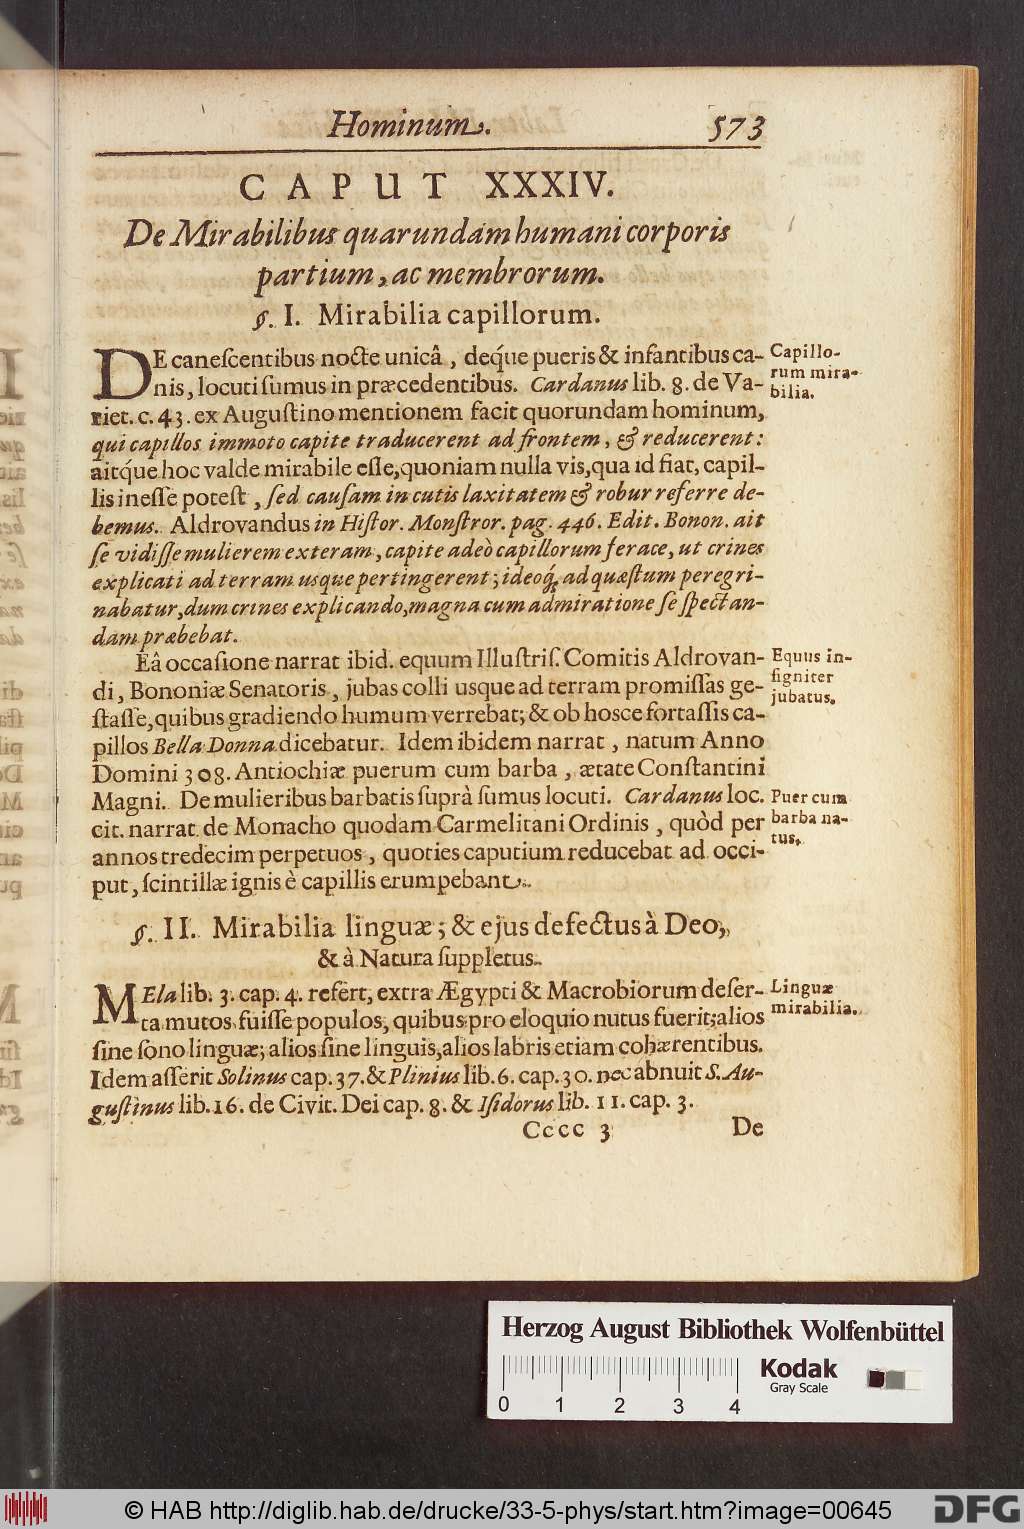 Hominum. 573
CAPUT XXXIV.
De Mirabilibus quarundam humani corporis
partium, ac membrorum.
§. I. Mirabilia capillorum.
DE caneſcentibus nocte unicâ, deq́ue pueris & infantibus ca-
nis, locuti ſumus in præcedentibus. Cardanus lib. 8. de Va-
riet. c. 43. ex Auguſtino mentionem facit quorundam hominum,
qui capillos immoto capite traducerent ad frontem, & reducerent:
aitq́ue hoc valde mirabile eſſe, quoniam nulla vis, qua id fiat, capil-
lis ineſſe poteſt, ſed cauſam in cutis laxitatem & robur referre de-
bemus. Aldrovandus in Hiſtor. Monſtror. pag. 446. Edit. Bonon. ait
ſe vidiſſe mulierem exteram, capite adeò capillorum ferace, ut crines
explicati ad terram usque pertingerent; ideoq́; ad quæſtum peregri-
nabatur, dum crines explicando, magna cum admiratione ſe ſpectan-
dam præbebat.
Capillo-
rum mira-
bilia.
Eâ occaſione narrat ibid. equum Illuſtriſ. Comitis Aldrovan-
di, Bononiæ Senatoris, jubas colli usque ad terram promiſſas ge-
ſtaſſe, quibus gradiendo humum verrebat; & ob hosce fortaſſis ca-
pillos Bella Donna dicebatur. Idem ibidem narrat, natum Anno
Domini 308. Antiochiæ puerum cum barba, ætate Conſtantini
Magni. De mulieribus barbatis ſuprà ſumus locuti. Cardanus loc.
cit. narrat de Monacho quodam Carmelitani Ordinis, quòd per
annos tredecim perpetuos, quoties caputium reducebat ad occi-
put, ſcintillæ ignis è capillis erumpebant.
Equus in-
ſigniter
jubatus.
Puer cum
barba na-
tus.
§. II. Mirabilia linguæ; & ejus defectus à Deo,
& à Natura ſuppletus.
MEla lib. 3. cap. 4. refert, extra Ægypti & Macrobiorum deſer-
ta mutos fuiſſe populos, quibus pro eloquio nutus fuerit; alios
ſine ſono linguæ; alios ſine linguis, alios labris etiam cohærentibus.
Idem aſſerit Solinus cap. 37. & Plinius lib. 6. cap. 30. nec abnuit S. Au-
guſtinus lib. 16. de Civit. Dei cap. 8. & Iſidorus lib. 11. cap. 3.
Linguæ
mirabilia.
Cccc 3 De
Herzog August Bibliothek Wolfenbüttel
Kodak
Gray Scale
0 1 2 3 4
© HAB http://diglib.hab.de/drucke/33-5-phys/start.htm?image=00645
DFG